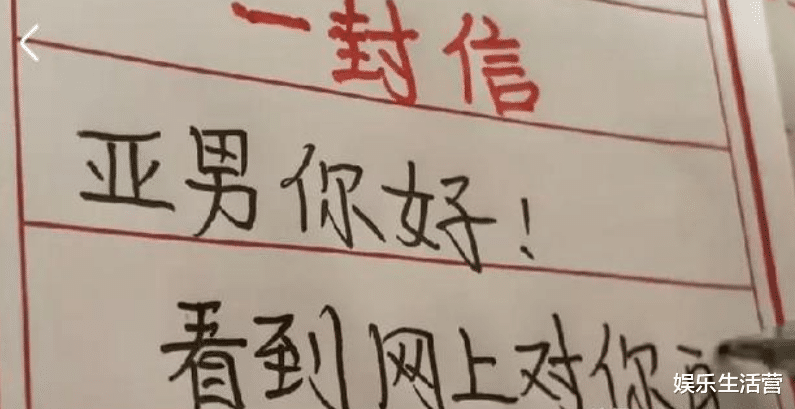 一封信
亚男你好！
看到网上对你
娱乐生活营